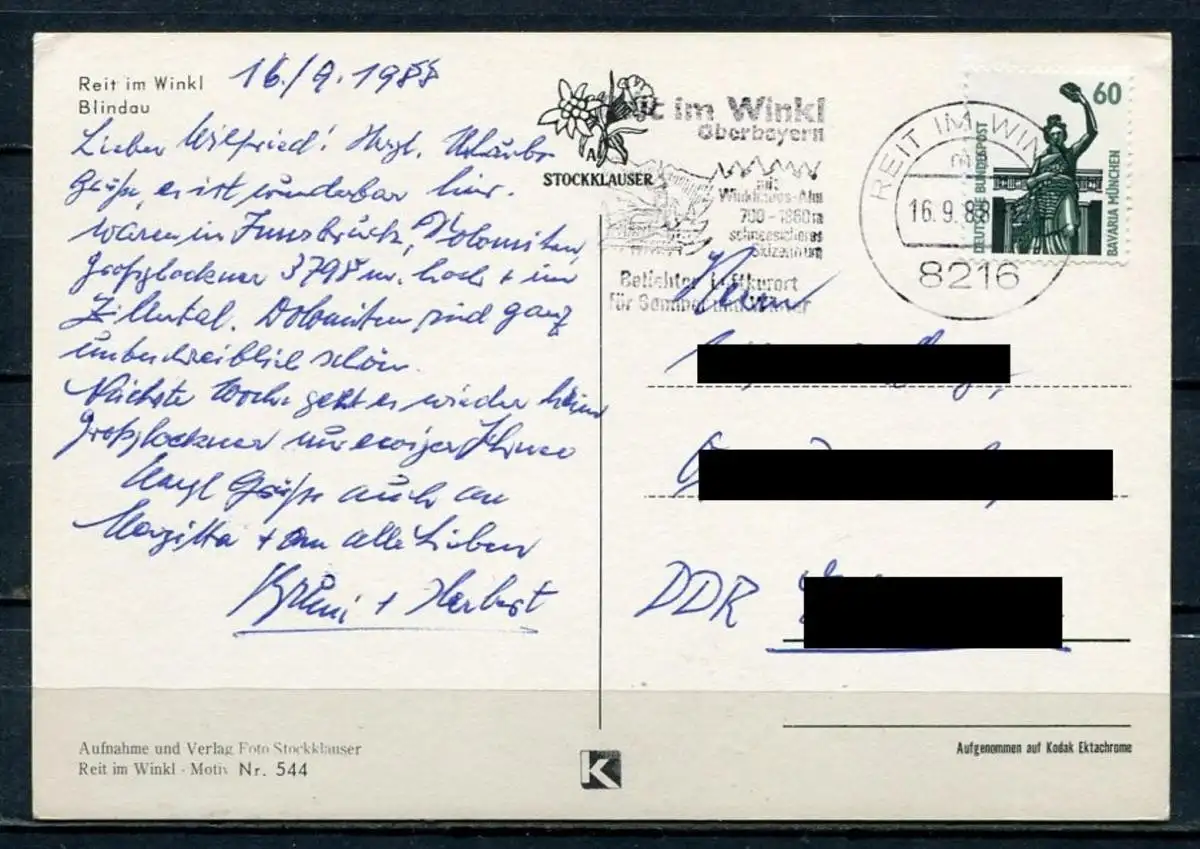 Reit im Winkl
Blindau
16./9.1988
Lieber Wilfried! Herzl. Urlaubs
Grüße, es ist wunderbar hier.
Waren in Innsbruck, Dolomiten,
Großglockner 3798 m. hoch + im
Zillertal. Dolomiten sind ganz
unbeschreiblich schön.
Nächste Woche geht es wieder heim
Großglockner nur ewiger
Herzl Grüße auch an
Margitta + an alle Lieben
+ Herbert
Aufnahme und Verlag Foto Stockklauser
Reit im Winkl · Motiv Nr. 544
A
STOCKKLAUSER
it im Winkl
Oberbayern
mit
Winklmoos-Alm
700-1860m
schneesicheres
Skizentrum
Beliebter Luftkurort
für Sommer und Winter
REIT IM WIN
16.9.88
8216
60
DEUTSCHE BUNDESPOST
BAVARIA MÜNCHEN
Herrn
DDR
K
Aufgenommen auf Kodak Ektachrome